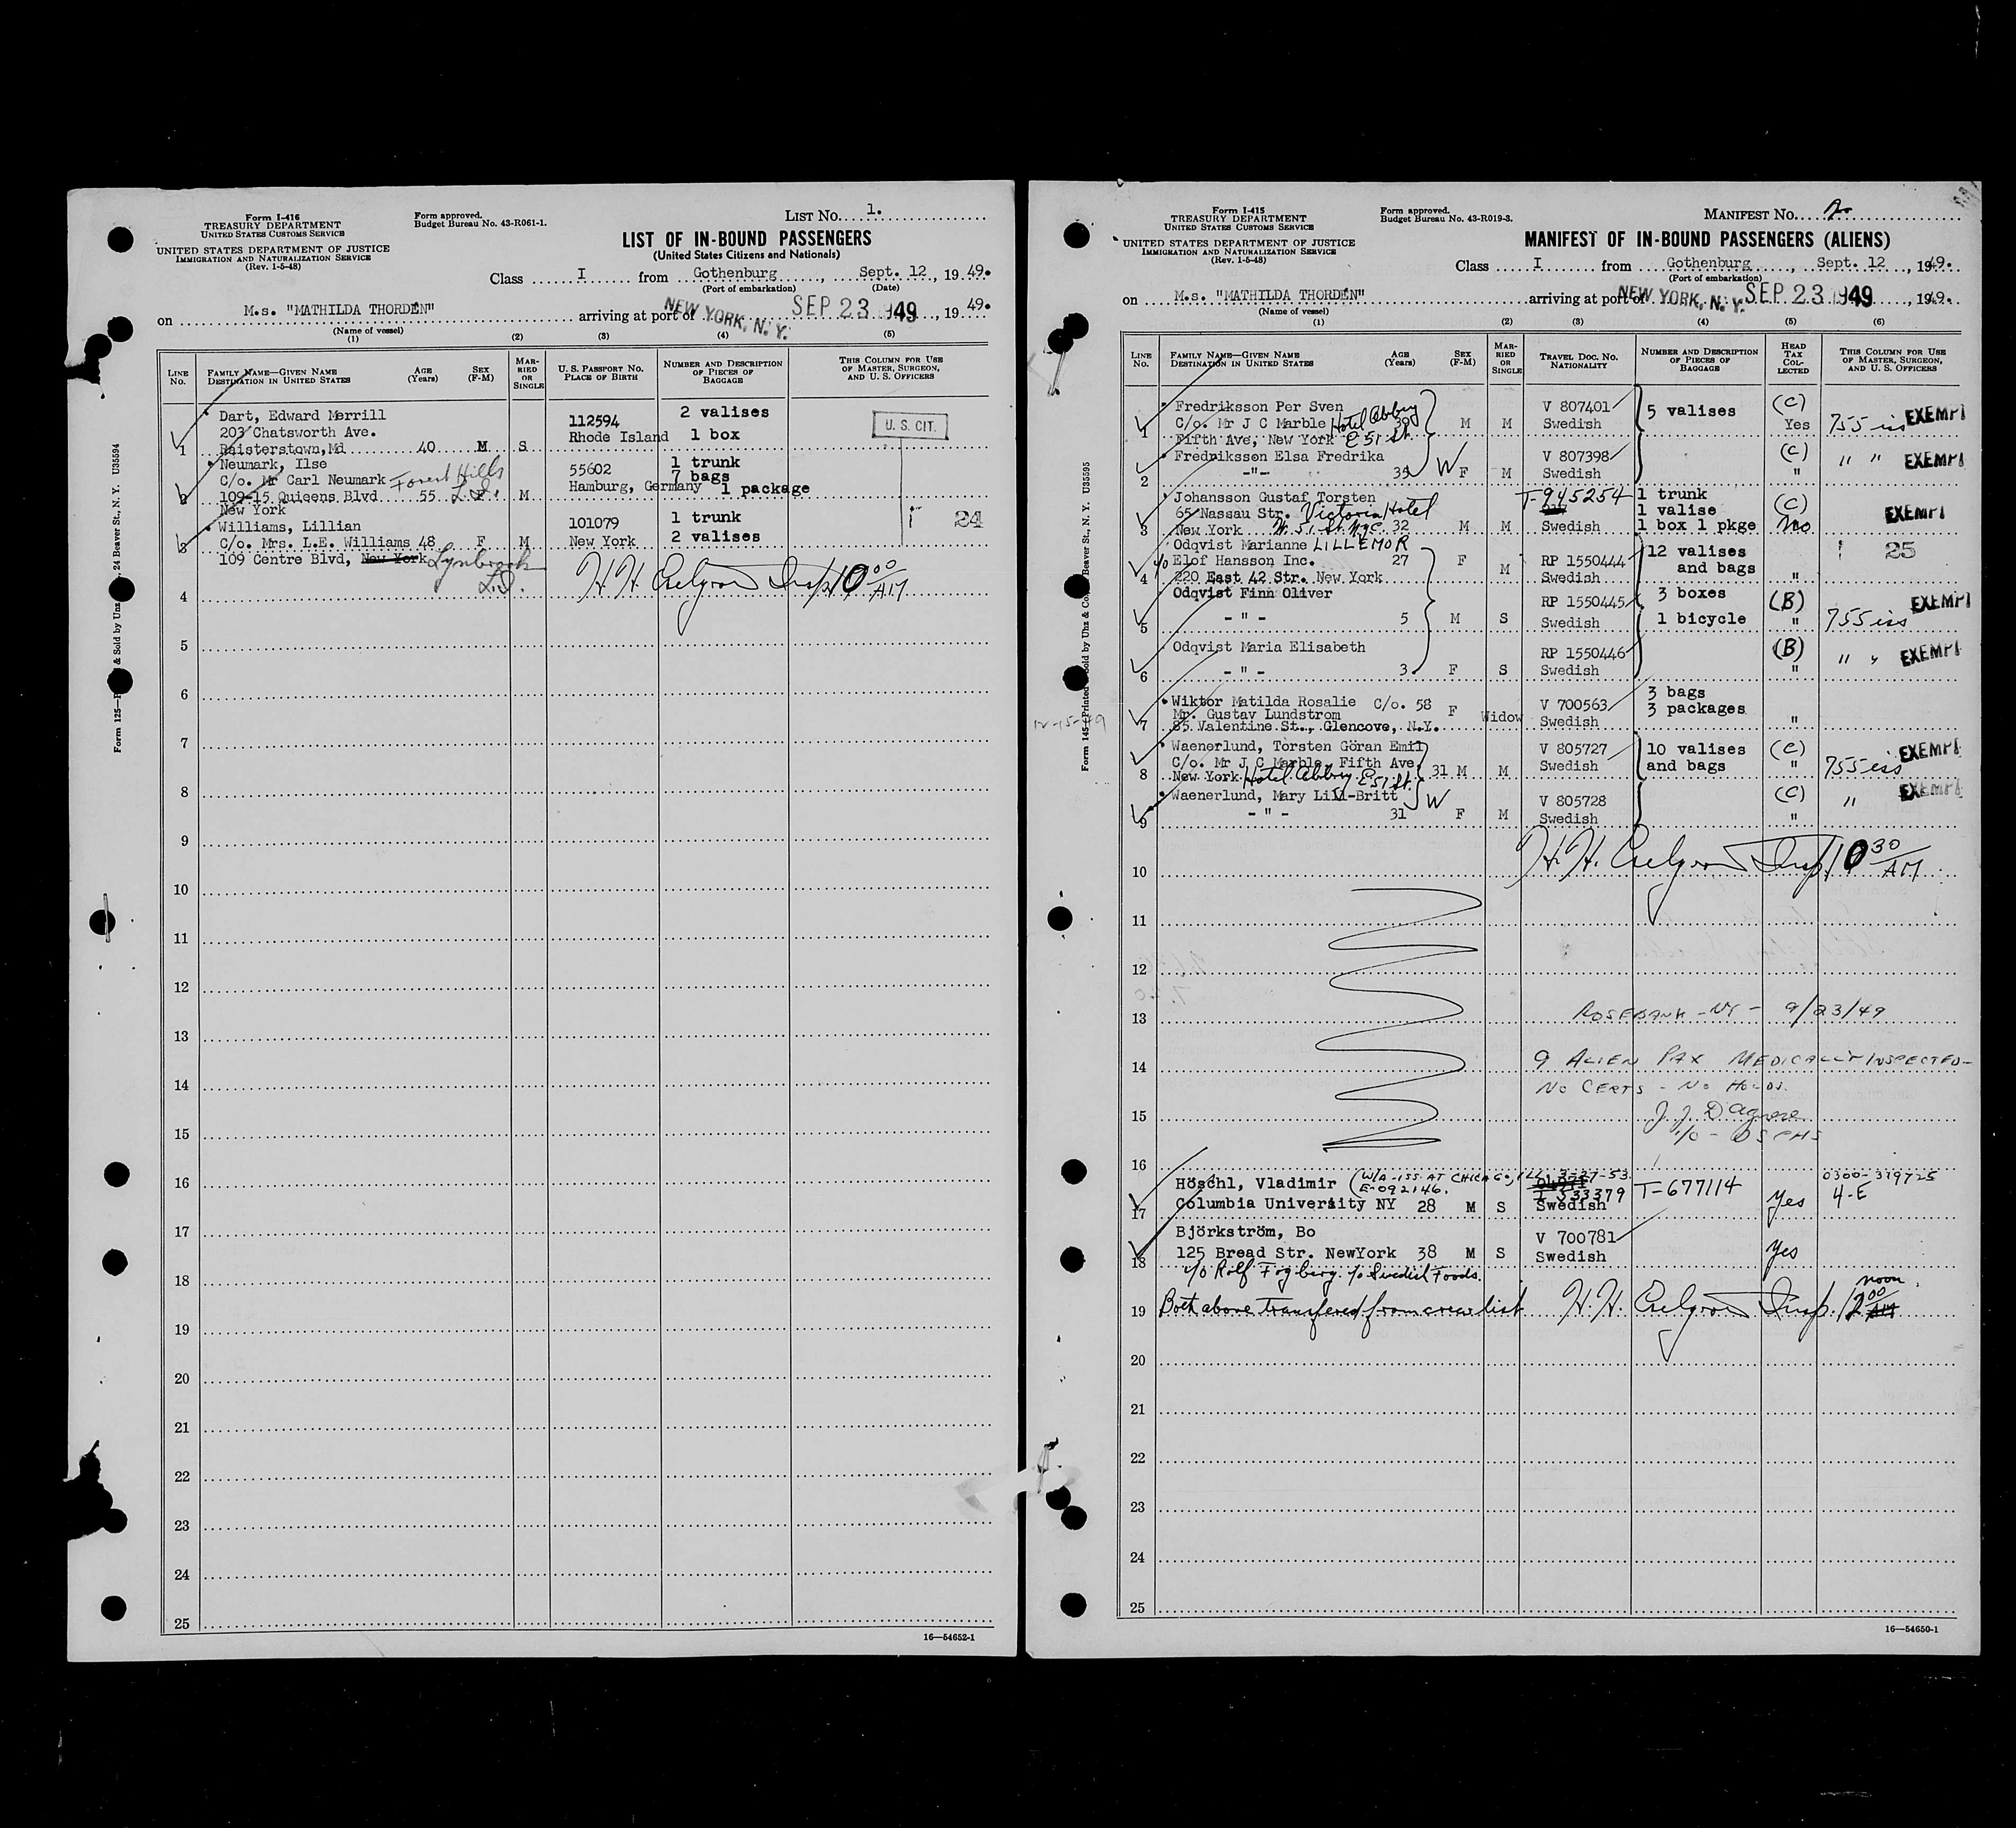 Form I-416
TREASURY DEPARTMENT
UNITED STATES CUSTOMS SERVICE
UNITED STATES DEPARTMENT OF JUSTICE
IMMIGRATION AND NATURALIZATION SERVICE
(Rev. 1-5-48)
Form approved.
Budget Bureau No. 43-R061-1.
LIST No. 1.
LIST OF IN-BOUND PASSENGERS
(United States Citizens and Nationals)
Class I from Gothenburg, Sept. 12, 1949.
(Port of embarkation) (Date)
on M.s. "MATHILDA THORDÉN" arriving at port of NEW YORK, N. Y. SEP 23 1949, 1949.
(Name of vessel)
(1) (2) (3) (4) (5)
LINE No.
FAMILY NAME—GIVEN NAME
DESTINATION IN UNITED STATES
AGE (Years)
SEX (F-M)
MARRIED OR SINGLE
U. S. PASSPORT NO.
PLACE OF BIRTH
NUMBER AND DESCRIPTION OF PIECES OF BAGGAGE
THIS COLUMN FOR USE OF MASTER, SURGEON, AND U. S. OFFICERS
Dart, Edward Merrill 112594 2 valises
203 Chatsworth Ave. Rhode Island 1 box U. S. CIT.
1 Reisterstown,Md 40 M S
Neumark, Ilse 55602 1 trunk
C/o. Mr Carl Neumark Forest Hills Hamburg, Germany 7 bags
2 109-15 Quieens Blvd L.I. 55 F M 1 package
New York
Williams, Lillian 101079 1 trunk 24
3 C/o. Mrs. L.E. Williams 48 F M New York 2 valises
109 Centre Blvd, New York Lynbrook
L.I.
H. H. Insp 10 00 AM
4
5
6
7
8
9
10
11
12
13
14
15
16
17
18
19
20
21
22
23
24
25
16—54652-1
24 Beaver St., N. Y. U35594
& Sold by Unz
Form 125—
Form I-415
TREASURY DEPARTMENT
UNITED STATES CUSTOMS SERVICE
UNITED STATES DEPARTMENT OF JUSTICE
IMMIGRATION AND NATURALIZATION SERVICE
(Rev. 1-5-48)
Form approved.
Budget Bureau No. 43-R019-3.
MANIFEST No. 2.
MANIFEST OF IN-BOUND PASSENGERS (ALIENS)
Class I from Gothenburg, Sept. 12, 1949.
(Port of embarkation)
on M.s. "MATHILDA THORDÉN" arriving at port of NEW YORK, N. Y. SEP 23 1949, 1949.
(Name of vessel)
(1) (2) (3) (4) (5) (6)
LINE No.
FAMILY NAME—GIVEN NAME
DESTINATION IN UNITED STATES
AGE (Years)
SEX (F-M)
MARRIED OR SINGLE
TRAVEL DOC. NO.
NATIONALITY
NUMBER AND DESCRIPTION OF PIECES OF BAGGAGE
HEAD TAX COLLECTED
THIS COLUMN FOR USE OF MASTER, SURGEON, AND U. S. OFFICERS
Fredriksson Per Sven V 807401 5 valises (C)
1 C/o. Mr J C Marble Hotel Abbey 39 M M Swedish Yes 755 iss EXEMPT
Fifth Ave, New York E 51 St.
Fredriksson Elsa Fredrika V 807398 (C)
2 -"- 35 W F M Swedish " " " EXEMPT
Johansson Gustaf Torsten T-945254 1 trunk
65 Nassau Str. Victoria Hotel 1 valise (C)
3 New York W. 51 St. NYC. 32 M M Swedish 1 box 1 pkge No EXEMPT
Odqvist Marianne LILLEMOR
c/o Elof Hansson Inc. 27 F M RP 1550444 12 valises 25
4 220 East 42 Str. New York Swedish and bags "
Odqvist Finn Oliver RP 1550445 3 boxes (B) EXEMPT
5 - " - 5 M S Swedish 1 bicycle " 755 iss
Odqvist Maria Elisabeth RP 1550446 (B)
6 - " - 3 F S Swedish " " " EXEMPT
12-15-49
Wiktor Matilda Rosalie C/o. 58 F V 700563 3 bags
7 Mr. Gustav Lundstrom Widow Swedish 3 packages "
85 Valentine St., Glencove, N.Y.
Waenerlund, Torsten Göran Emil V 805727 10 valises (C) EXEMPT
C/o. Mr J C Marble, Fifth Ave Swedish and bags "
8 New York Hotel Abbey E 51 St. 31 M M 755 iss
Waenerlund, Mary Lill-Britt W V 805728 (C) EXEMPT
9 - " - 31 F M Swedish " "
H. H. Insp. 10 30 AM
10
11
12
13 ROSEBANK - NY - 9/23/49
14 9 ALIEN PAX MEDICALLY INSPECTED -
NO CERTS - NO HOLDS.
15 J. J. D'Agnese
USPHS
16
Höschl, Vladimir (W/A - ISS. AT CHICAGO, ILL. 3-27-53. 0300-319725
E-092146. T-533379 T-677114 4-E
17 Columbia University NY 28 M S Swedish Yes
Björkström, Bo V 700781
18 125 Bread Str. NewYork 38 M S Swedish Yes
c/o Rolf Fogberg. c/o Swedish Foods.
19 Both above transfered from crew list H. H. Insp. 12 00 noon
20
21
22
23
24
25
16—54650-1
Beaver St., N. Y. U35595